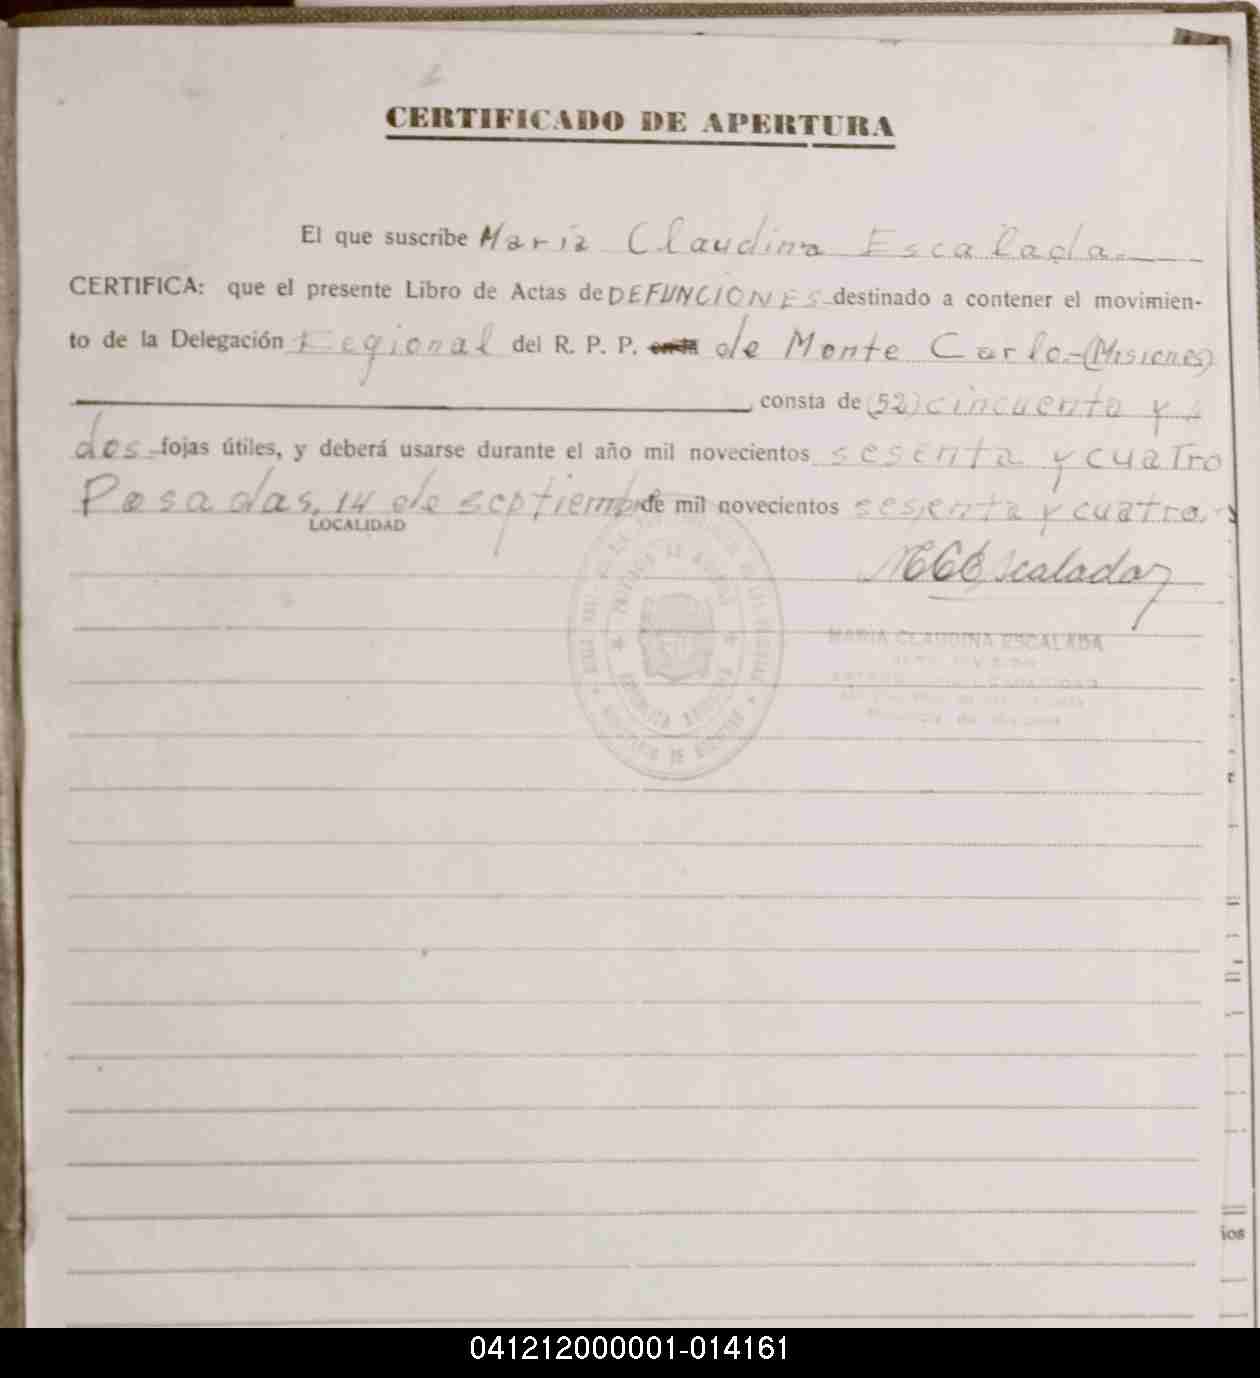 CERTIFICADO DE APERTURA
El que suscribe Maria Claudina Escalada.
CERTIFICA: que el presente Libro de Actas de DEFUNCIONES destinado a contener el movimien-
to de la Delegación Regional del R. P. P. de Monte Carlo.-(Misiones)
consta de (52) cincuenta y
dos fojas útiles, y deberá usarse durante el año mil novecientos sesenta y cuatro
Posadas, 14 de septiembre de mil novecientos sesenta y cuatro.-
LOCALIDAD
MCEscalada
MARIA CLAUDINA ESCALADA
ios
041212000001-014161